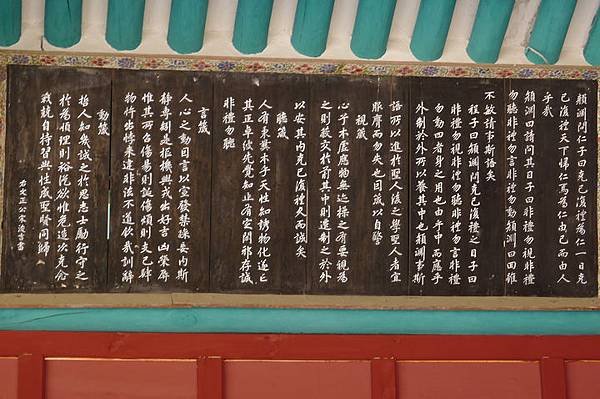 顏淵問仁子曰克己復禮爲仁一日克
己復禮天下歸仁焉爲仁由己而由人
乎哉
顏淵曰請問其目子曰非禮勿視非禮
勿聽非禮勿言非禮勿動顏淵曰回雖
不敏請事斯語矣
程子曰顏淵問克己復禮之目子曰
非禮勿視非禮勿聽非禮勿言非禮
勿動四者身之用也由乎中而應乎
外制於外所以養其中也顏淵事斯
語所以進於聖人後之學聖人者宜
服膺而勿失也因箴以自警
視箴
心兮本虛應物無迹操之有要視爲
之則蔽交於前其中則遷制之於外
以安其內克己復禮久而誠矣
聽箴
人有秉彝本乎天性知誘物化遂亡
其正卓彼先覺知止有定閑邪存誠
非禮勿聽
言箴
人心之動因言以宣發禁躁妄內斯
靜專矧是樞機興戎出好吉凶榮辱
惟其所召傷易則誕傷煩則支己肆
物忤出悖來違非法不道欽哉訓辭
動箴
哲人知幾誠之於思志士勵行守之
於爲順理則裕從欲惟危造次克念
戰兢自持習與性成聖賢同歸
右文正公宋浚吉書